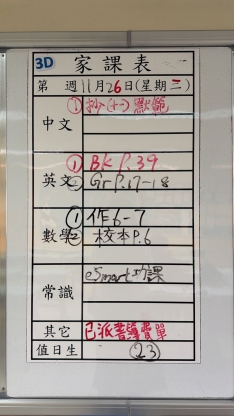 3D 家課表
第 週 11月26日(星期三)
中文 ① 抄(十一)默飾
英文 ① BK P.39
② Gr P.17-18
數學 ① 作6-7
② 校本P.6
常識 eSmart功課
其它 已派書簿費單
值日生 (23)